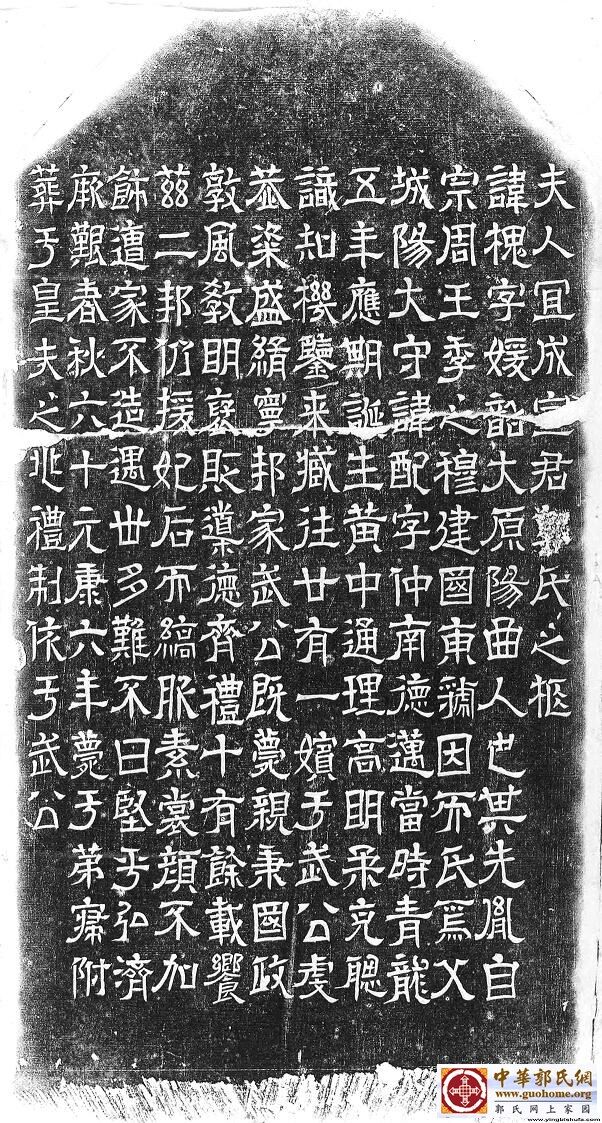 夫人冝成宣君郭氏之柩
諱槐字媛韶大原陽曲人也其先胤自
宗周王季之穆建國東虢因而氏焉父
城陽大守諱配字仲南德邁當時青龍
五年應期誕生黃中通理高明柔克聰
識知機鑒来臧往廿有一嬪于武公虔
恭粢盛緝寧邦家武公既薨親秉國政
敦風教明褒貶導德齊禮十有餘載饗
茲二邦仍援妃后而縞服素裳顏不加
飾遭家不造遇世多難不曰堅乎弘濟
厥艱春秋六十元康六年薨于第寢附
葬于皇夫之兆禮制依于武公
中華郭氏網
www.guohome.org
郭氏网上家园
www.yingbishufa.com